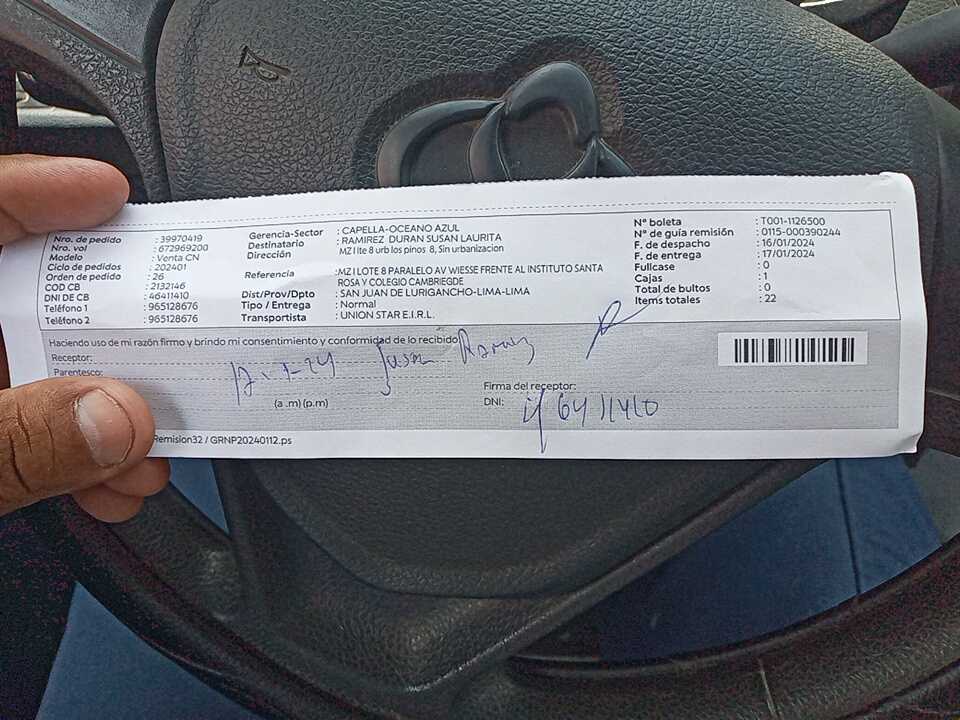 Nro. de pedido : 39970419
Nro. vol : 672969200
Modelo : Venta CN
Ciclo de pedidos : 202401
Orden de pedido : 26
COD CB : 2132146
DNI DE CB : 46411410
Teléfono 1 : 965128676
Teléfono 2 : 965128676
Gerencia-Sector : CAPELLA-OCEANO AZUL
Destinatario : RAMIREZ DURAN SUSAN LAURITA
Dirección MZ I lte 8 urb los pinos 8, Sin urbanizacion
Referencia : MZ I LOTE 8 PARALELO AV WIESSE FRENTE AL INSTITUTO SANTA
ROSA Y COLEGIO CAMBRIEGDE
Dist/Prov/Dpto : SAN JUAN DE LURIGANCHO-LIMA-LIMA
Tipo / Entrega : Normal
Transportista : UNION STAR E.I.R.L.
N° boleta : T001-1126500
N° de guía remisión : 0115-000390244
F. de despacho : 16/01/2024
F. de entrega : 17/01/2024
Fullcase : 0
Cajas : 1
Total de bultos : 0
Items totales : 22
Haciendo uso de mi razón firmo y brindo mi consentimiento y conformidad de lo recibido
Receptor:
Parentesco:
Susan Ramirez
(a .m) (p.m)
Firma del receptor:
DNI: 46411410
Remision32 / GRNP20240112.ps